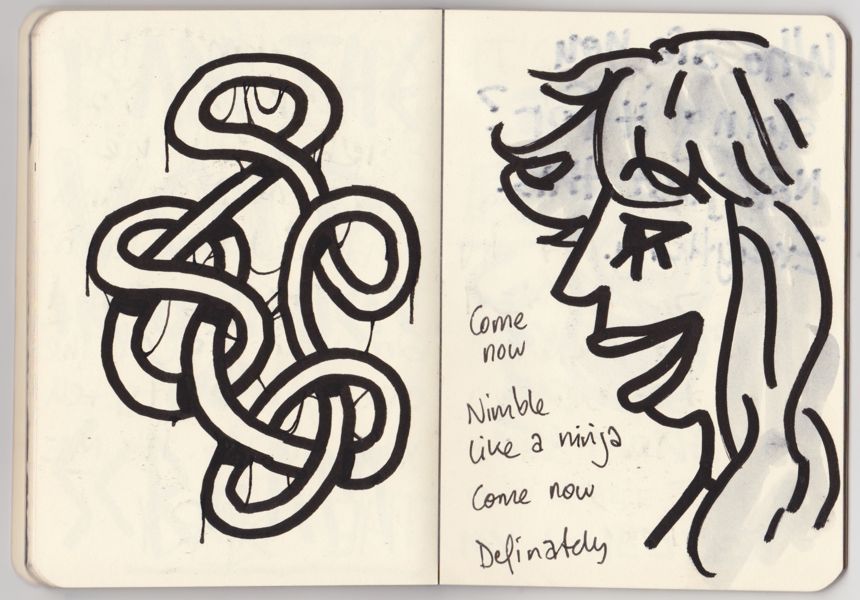 Come
now
Nimble
like a ninja
Come now
Definately